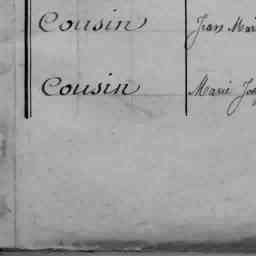 Cousin Jean Mar
Cousin Marie Jos